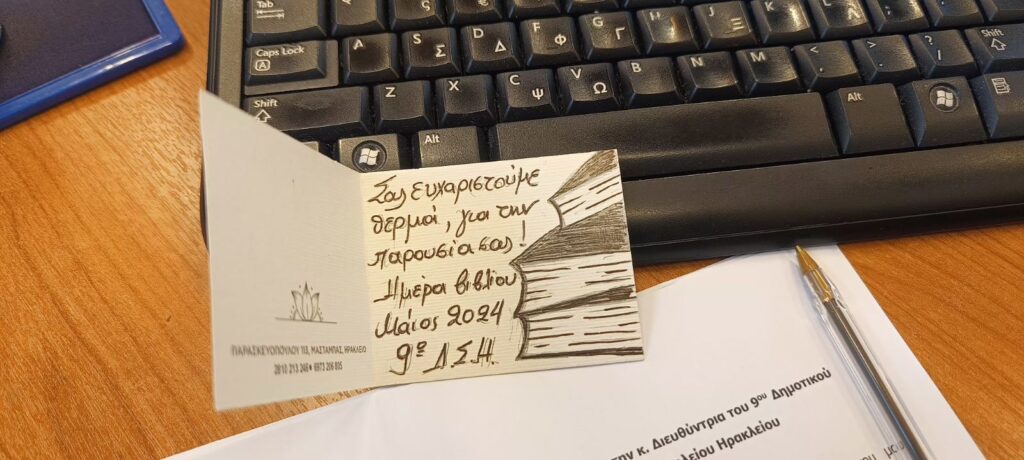 Tab
Caps Lock
A
A S Σ D Δ F Φ G Γ H J Ξ K L Λ
Shift Z X C Ψ V Ω B N M < , > . ? / Shift
Alt Alt
Σας ευχαριστούμε
θερμά, για την
παρουσία σας!
Ημέρα βιβλίου
Μάιος 2024
9ο Δ.Σ.Η.
ΠΑΡΑΣΚΕΥΟΠΟΥΛΟΥ 113, ΜΑΣΤΑΜΠΑΣ, ΗΡΑΚΛΕΙΟ
2810 213 246 • 6973 206 895
την κ. Διευθύντρια του 9ου Δημοτικού
Ηρακλείου